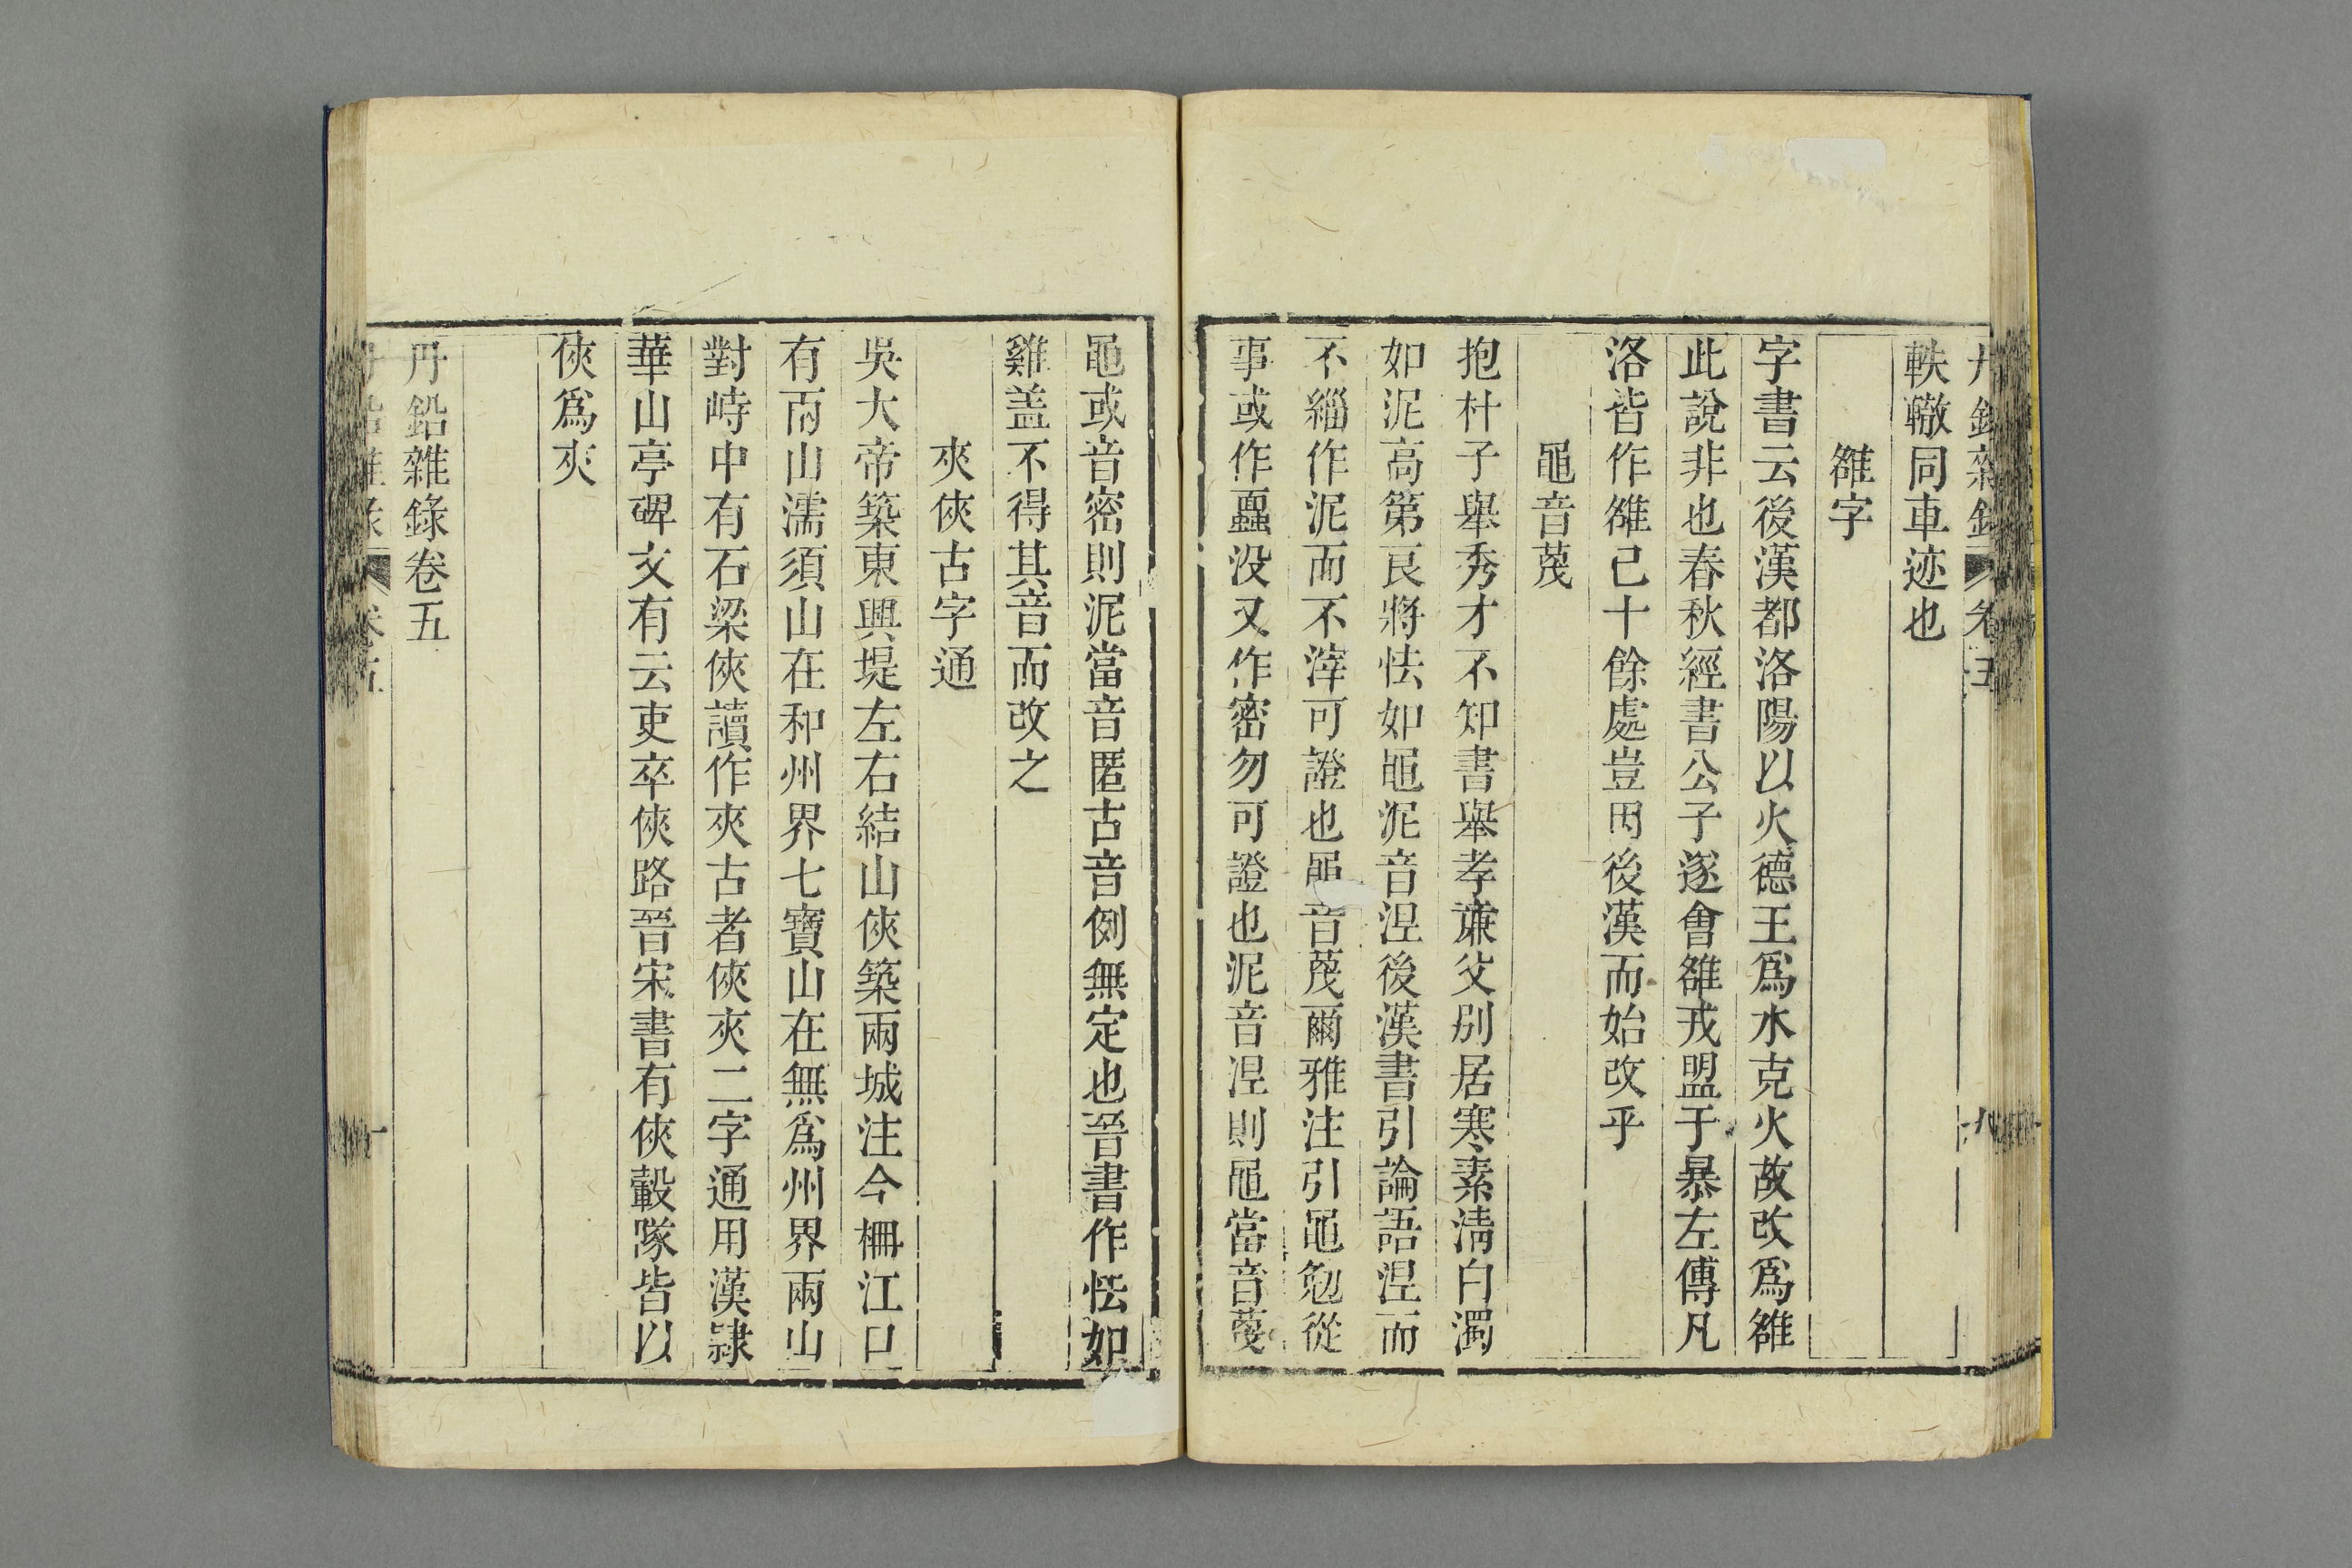 丹鉛雜錄 卷五 九
軼轍同車迹也
雒字
字書云後漢都洛陽以火德王爲水克火故改爲雒
此說非也春秋經書公子遂會雒戎盟于暴左傳凡
洛皆作雒已十餘處豈因後漢而始改乎
黽音蔑
抱朴子舉秀才不知書舉孝廉父別居寒素淸白濁
如泥高第良將怯如黽泥音涅後漢書引論語涅而
不緇作泥而不滓可證也黽音蔑爾雅注引黽勉從
事或作蠠没又作密勿可證也泥音涅則黽當音蔑
黽或音密則泥當音匿古音例無定也晉書作怯如
雞盖不得其音而改之
夾俠古字通
吳大帝築東興堤左右結山俠築兩城注今柵江口
有兩山濡須山在和州界七寶山在無爲州界兩山
對峙中有石梁俠讀作夾古者俠夾二字通用漢隷
華山亭碑文有云吏卒俠路晉宋書有俠轂隊皆以
俠爲夾
丹鉛雜錄卷五